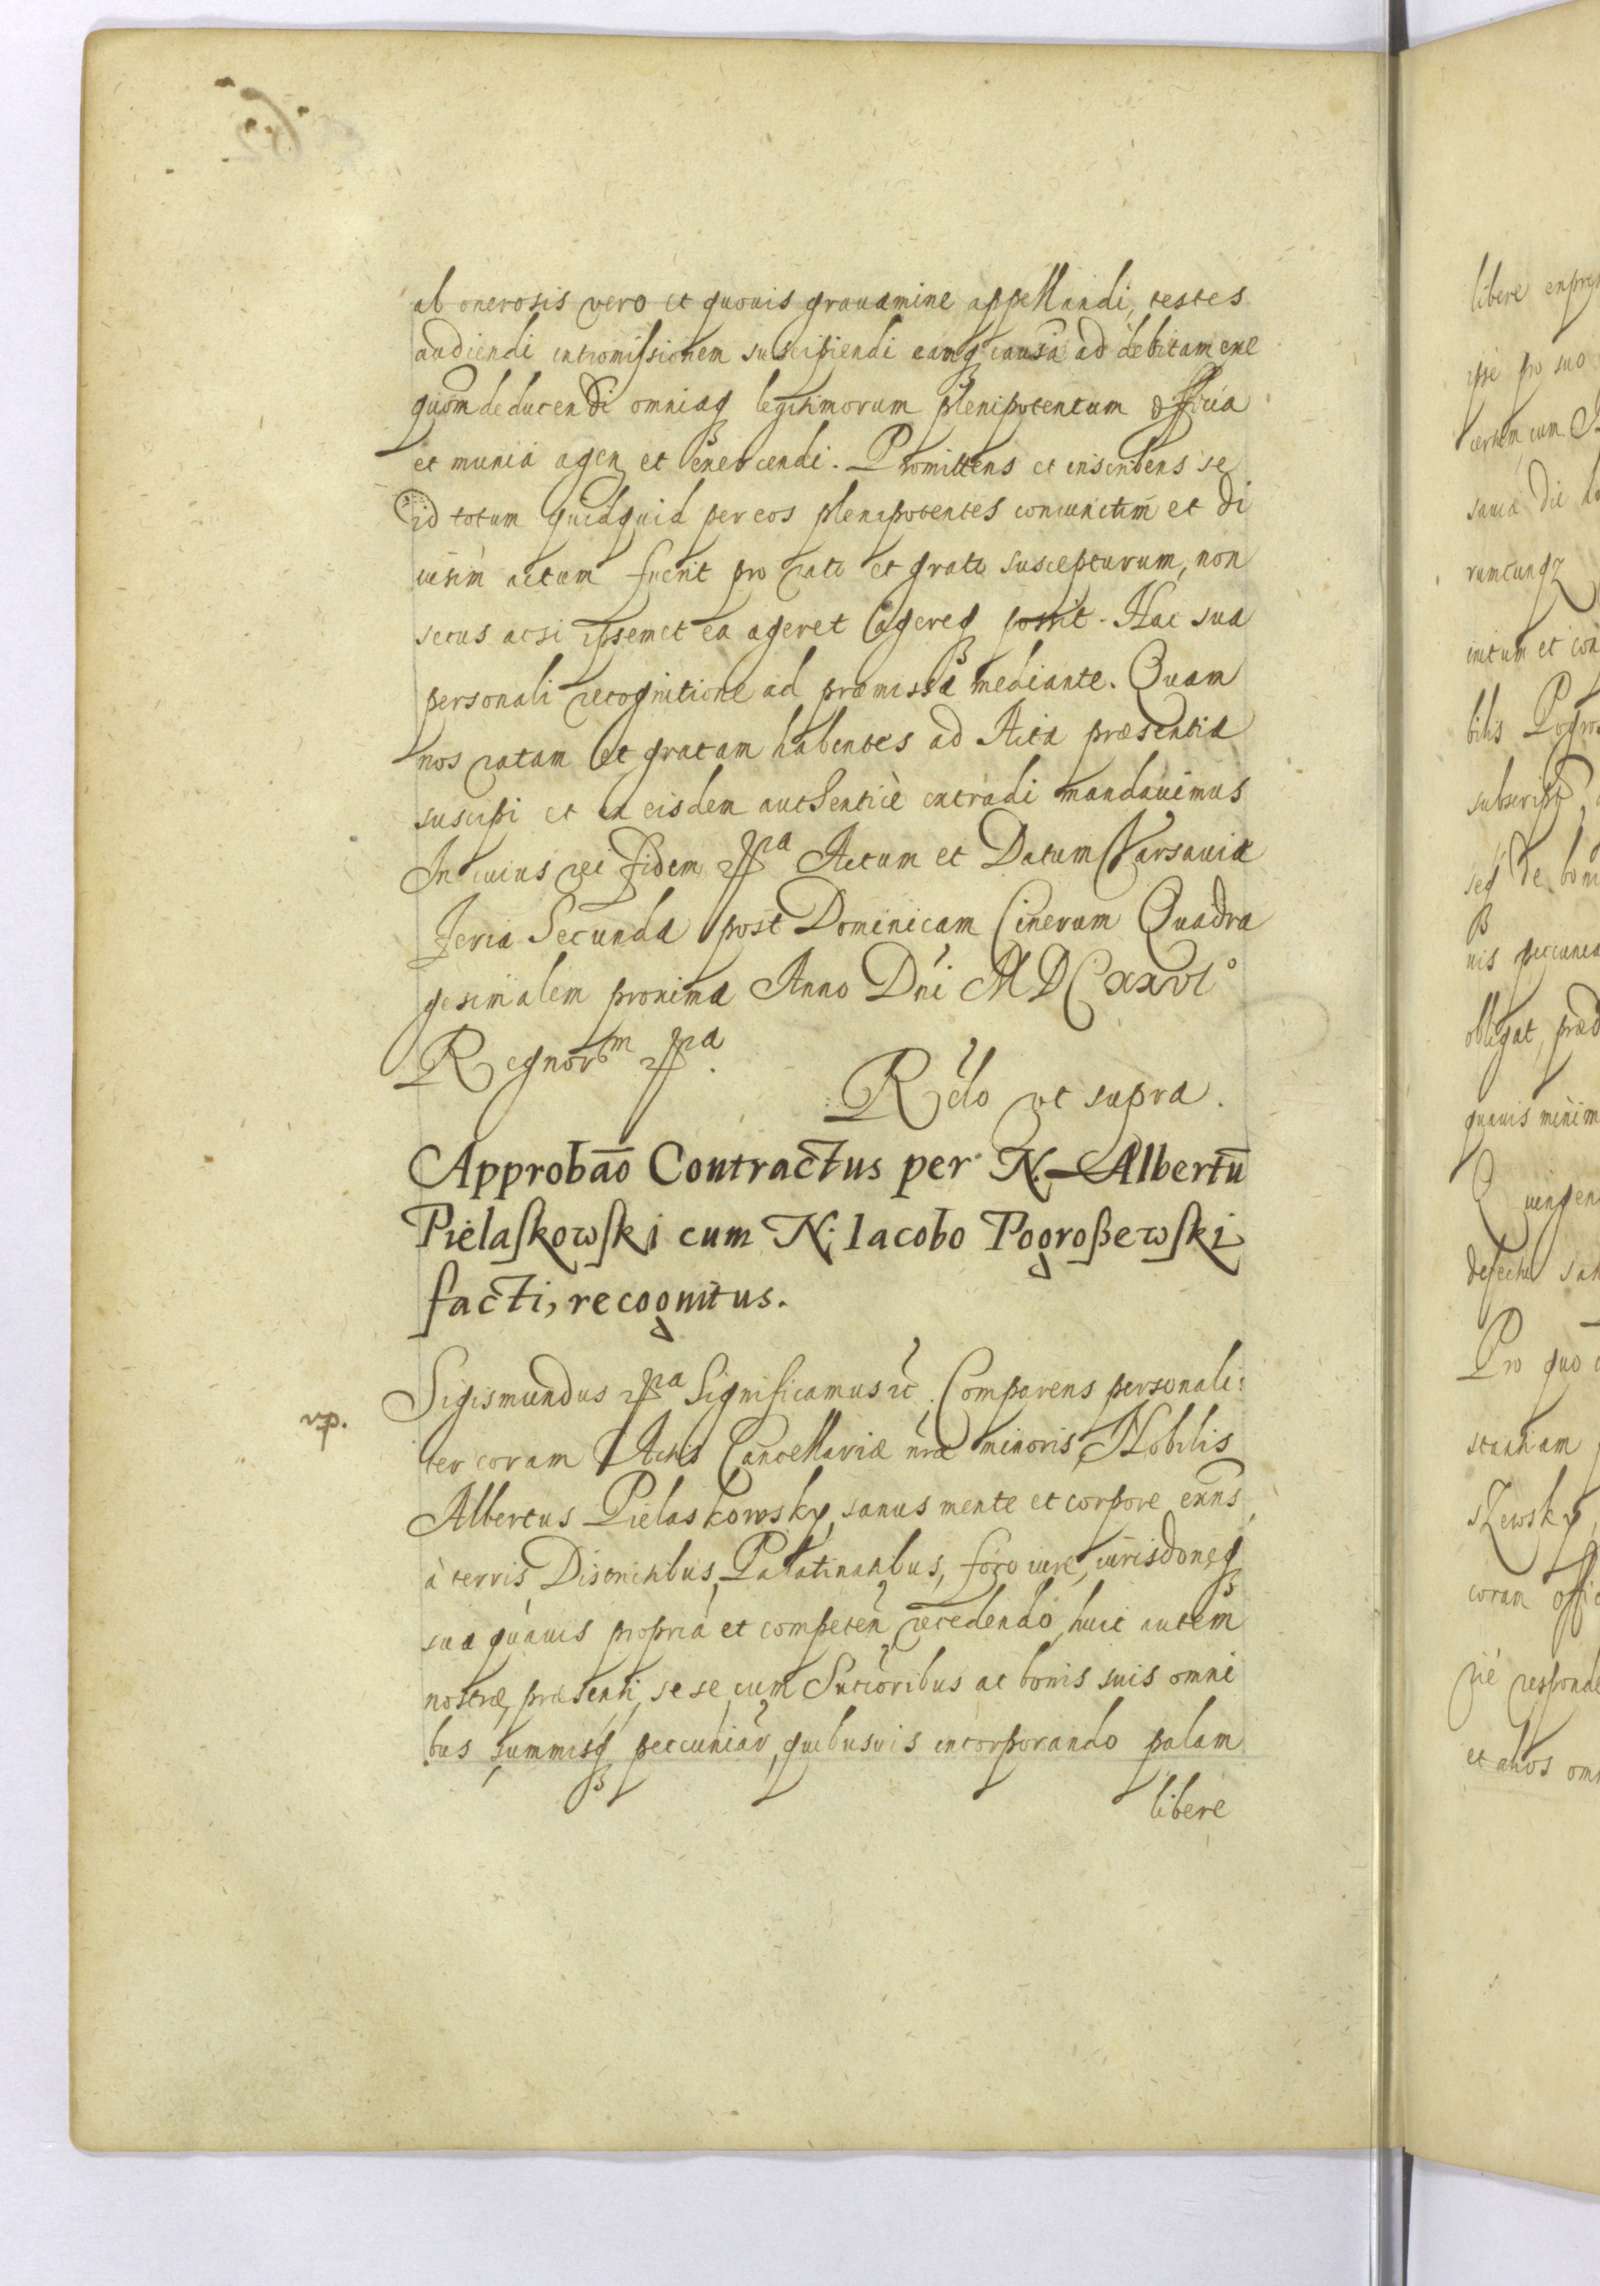 ab onerosis vero et quovis gravamine appellandi, testes
audiendi intromissionem suscipiendi eamq causã ad debitam exe
quõm deducendi omniaq legitimorum plenipotentum officia
et munia agen et exercendi. Promittens et inscribens se
id totum quidquid per eos plenipotentes coniunctim et di
uisim actum fuerit pro rato et grato suscepturum, non
secus acsi ipsemet ea ageret agereq possit. Hac sua
personali recognitione ad præmissa mediante. Quam
nos ratam et gratam habentes ad Acta præsentia
suscipi et in eisdem authenticè intradi mandavimus
In cuius rei fidem Actum et Datum Varsaviæ
Feria Secunda post Dominicam Cinerum Quadra
gesimalem proxima Anno Dni MDCxxvi°
Regnorm
Rclo ut supra.
Approbaõ Contractus per N. Albertũ
Pielaskowski cum N. Iacobo Pogroßewski
facti, recognitus.
Sigismundus Significamus Comparens personali:
ter coram Actis Cancellariæ nræ minoris, Nobilis
vp.
Albertus Pielaskowsky, sanus mente et corpore exñs
à terris, Districtibus, Palatinatibus, foro iure, iurisdoneq
sua quauis propria et competen recedendo, huic autem
nostræ, præsenti, sese cum Succoribus ac bonis suis omni
bus summisq pecuniar quibusvis incorporando palam
libere
libere
ipse pro suo
sania die
rumcunqz
initum et con
bilis Pogros
subscript
seq de boni
nis pecunia
obligat, præd
quauis minim
defectu
Pro quo
szewsky,
coram offic
rie responde
et alios omn